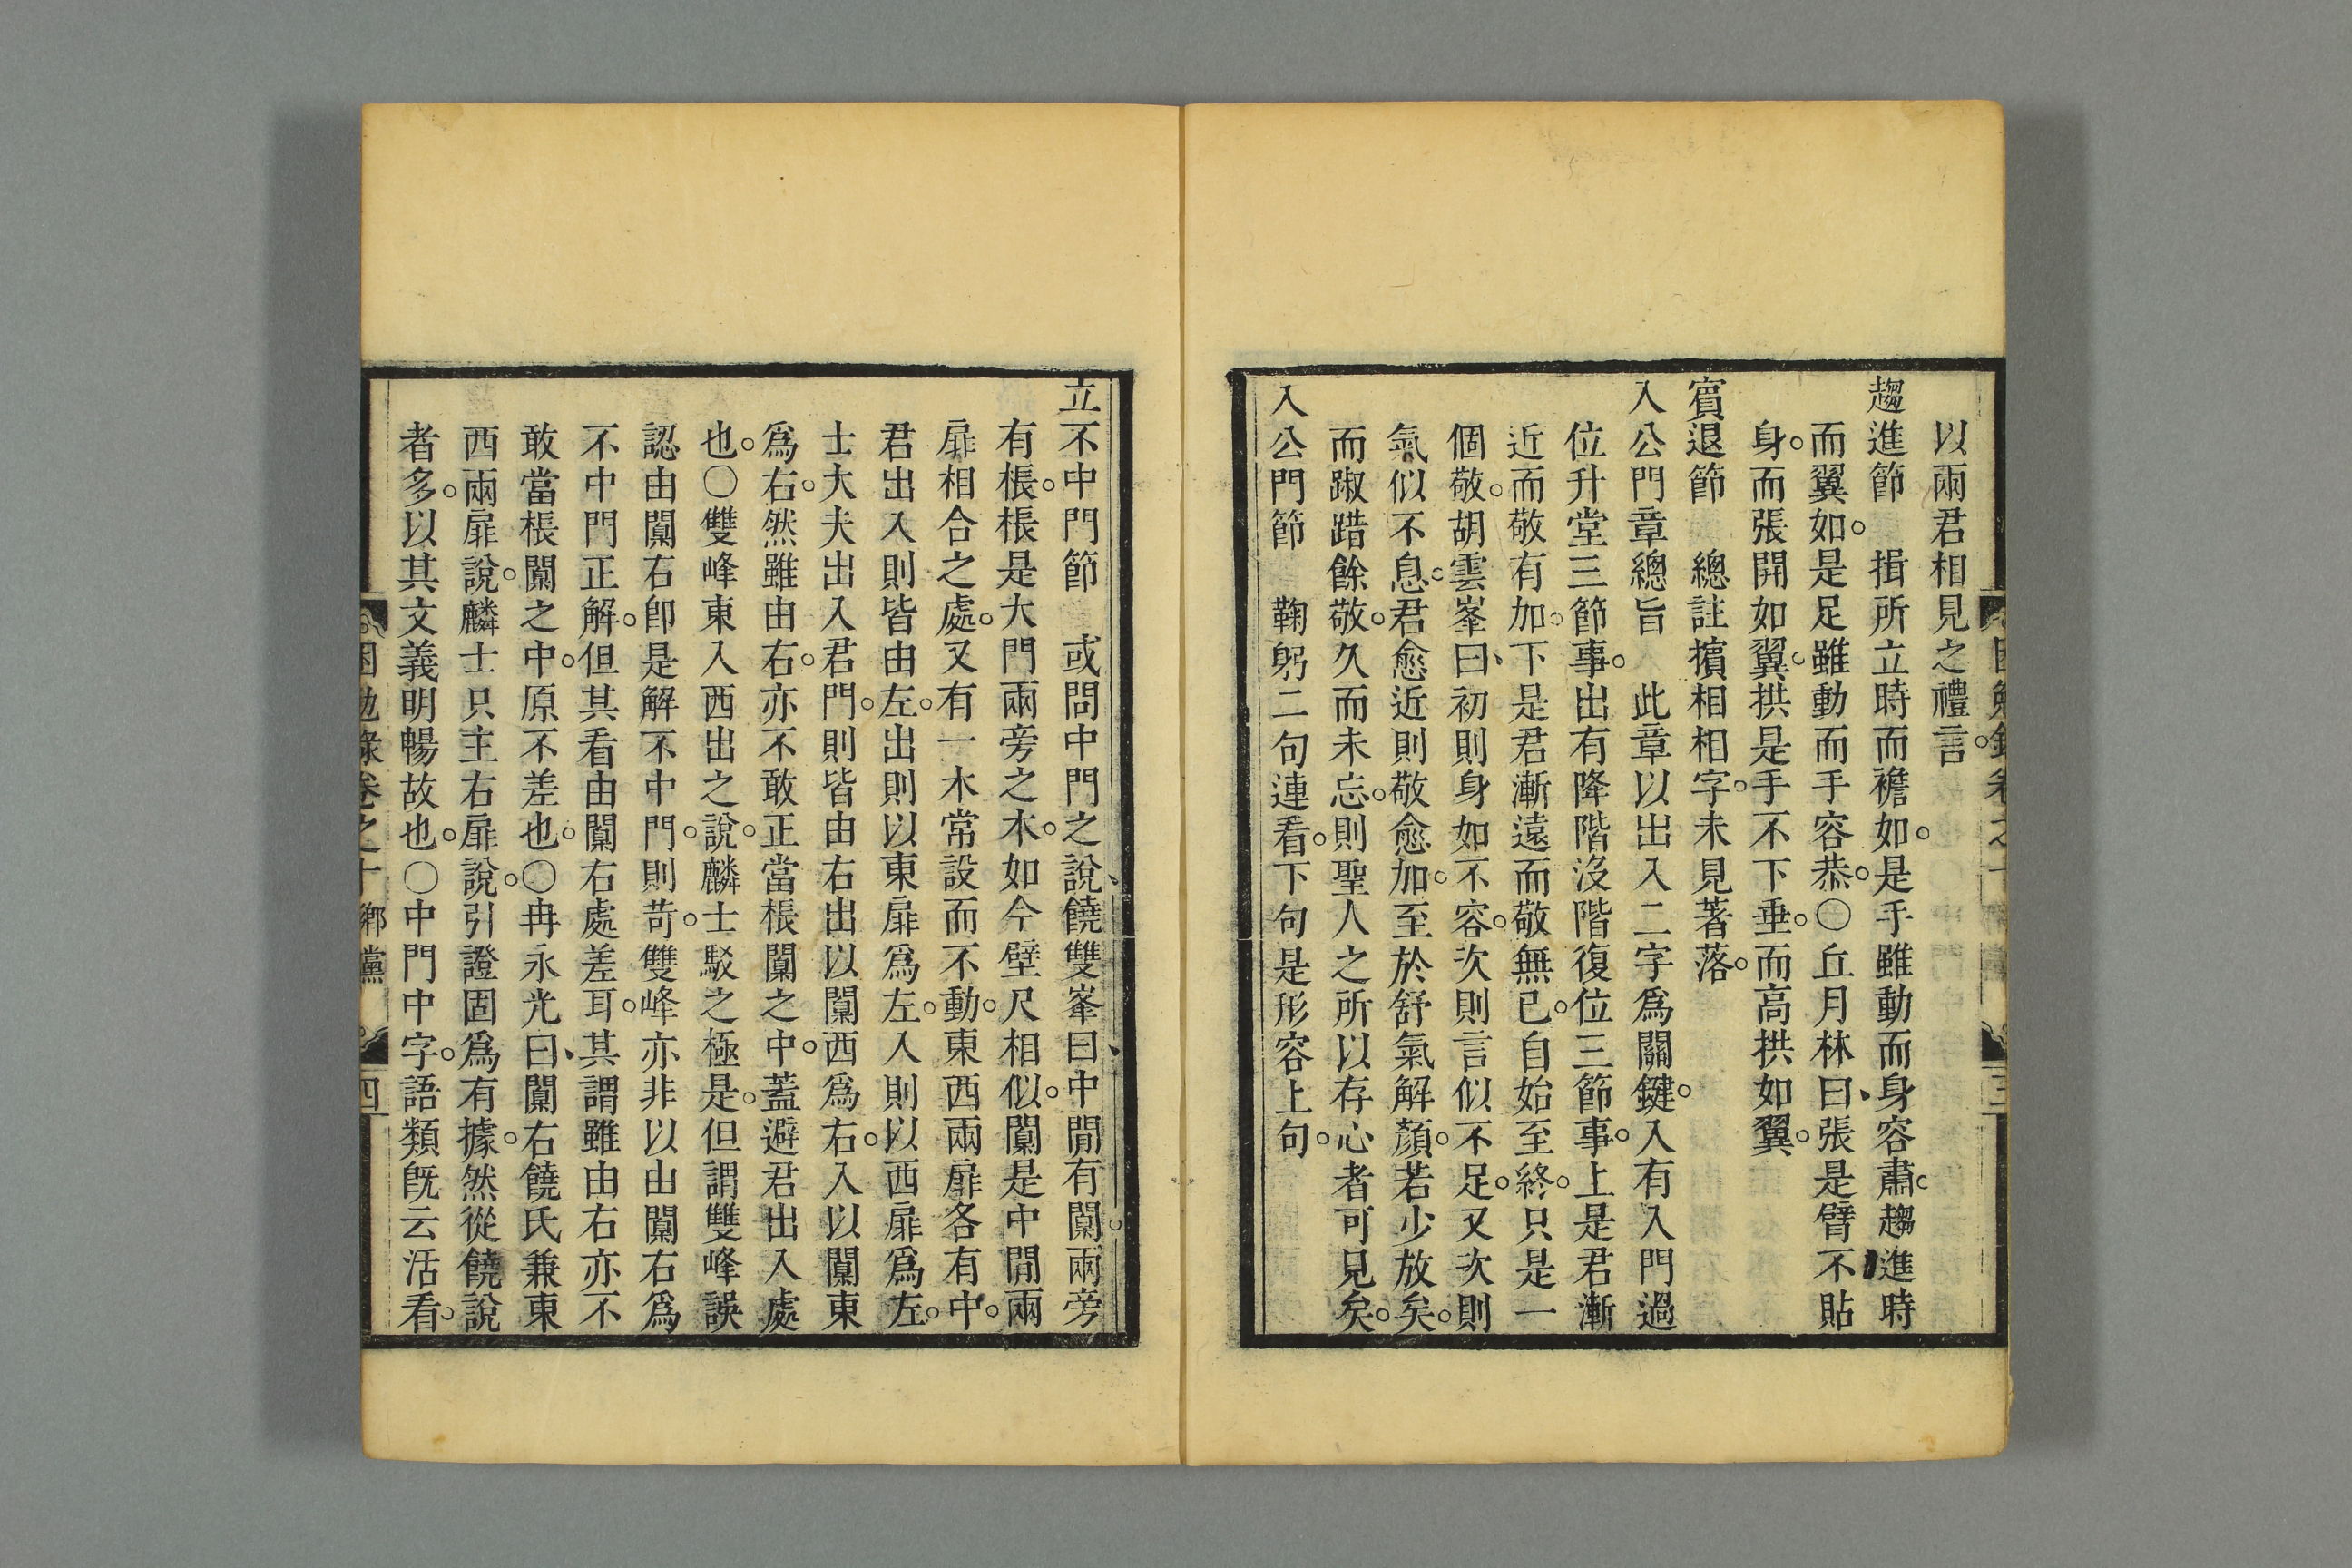 以兩君相見之禮言。
趨進節　揖所立時而襜如。是手雖動而身容肅。趨進時
而翼如。是足雖動而手容恭。〇丘月林曰、張是臂不貼
身。而張開如翼。拱是手不下垂。而高拱如翼。
賓退節　總註擯相相字。未見著落。
入公門章總旨　此章以出入二字爲關鍵。入有入門過
位升堂三節事。出有降階沒階復位三節事。上是君漸
近而敬有加。下是君漸遠而敬無已。自始至終。只是一
個敬。胡雲峯曰、初則身如不容。次則言似不足。又次則
氣似不息。君愈近則敬愈加。至於舒氣解顏。若少放矣。
而踧踖餘敬。久而未忘。則聖人之所以存心者可見矣。
入公門節　鞠躬二句連看。下句是形容上句。
三
立不中門節　或問中門之說、饒雙峯曰、中間有闑。兩旁
有棖。棖是大門兩旁之木。如今壁尺相似。闑是中間兩
扉相合之處。又有一木常設而不動。東西兩扉各有中。
君出入則皆由左。出則以東扉爲左。入則以西扉爲左。
士大夫出入君門。則皆由右。出以闑西爲右。入以闑東
爲右。然雖由右。亦不敢正當棖闑之中。蓋避君出入處
也。〇雙峰東入西出之說。麟士駁之極是。但謂雙峰誤
認由闑右卽是解不中門。則苛。雙峰亦非以由闑右爲
不中門正解。但其看由闑右處差耳。其謂雖由右亦不
敢當棖闑之中。原不差也。〇冉永光曰、闑右饒氏兼東
西兩扉說。麟士只主右扉說。引證固爲有據。然從饒說
者多。以其文義明暢故也。〇中門中字。語類旣云活看。
困勉錄卷之十　鄉黨　四